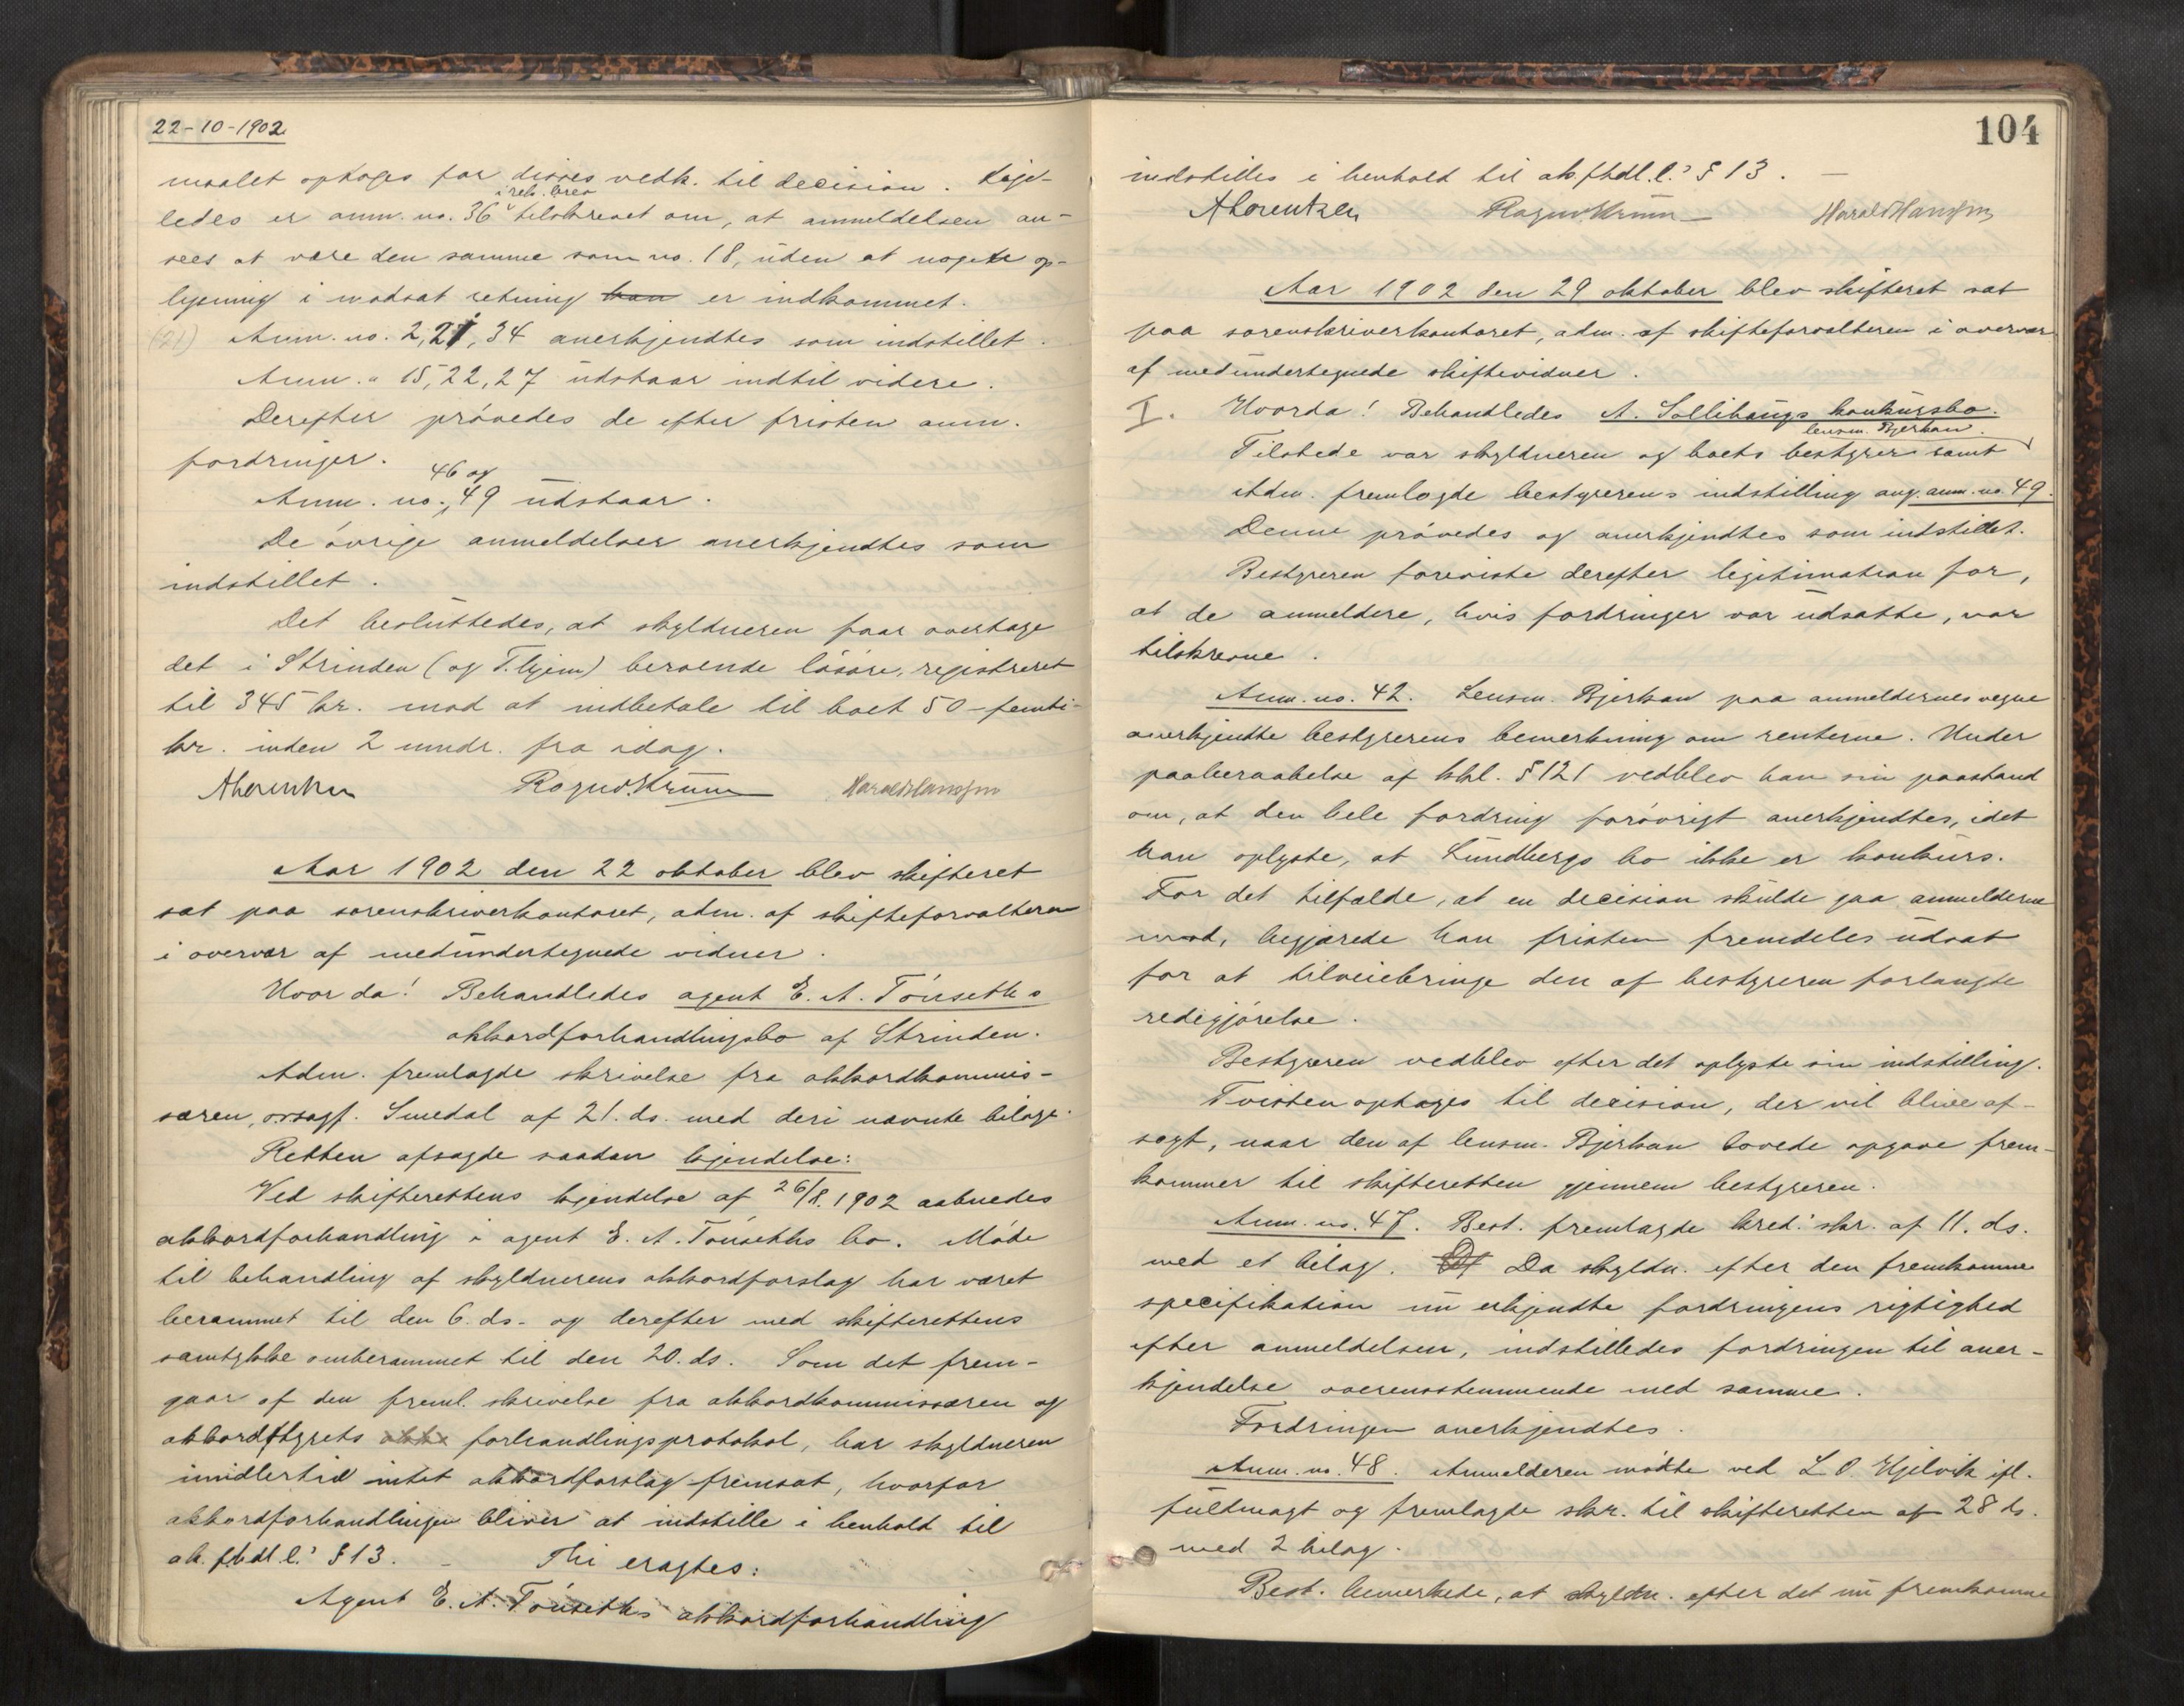 22-10-1902
maalet optages for disses vedk. til decision. Lige-
ledes er anm. no. 36 i rek. brev tilskrevet om, at anmeldelsen an-
sees at være den samme som no. 18, uden at nogen op-
lysning i modsat retning han er indkommet.
(21) Anm. no. 2, 21, 34 anerkjendtes som indstillet.
Anm. " 15, 22, 27 udstaar indtil videre.
Derefter prövedes de efter fristen anm.
fordringer.
Anm. no. 46 og 49 udstaar.
De övrige anmeldelser anerkjendtes som
indstillet.
Det besluttedes, at skyldneren faar overtage
det i Strinden (og T.hjem) beroende lösöre, registreret
til 345 kr. mod at indbetale til boet 50 - femti -
kr. inden 2 mndr. fra idag.
ALorentzen Ragnv. Krum Harald Hansen
Aar 1902 den 22 oktober blev skifteret
sat paa sorenskriverkontoret, adm. af skifteforvalteren
i overvær af medundertegnede vidner.
Hvor da! Behandledes agent E. A. Tönseths
akkordforhandlingsbo af Strinden.
Adm. fremlagde skrivelse fra akkordkommis-
særen, o.r.sagf. Smedal af 21. ds. med deri nævnte bilage.
Retten afsagde saadan kjendelse:
Ved skifterettens kjendelse af 26/8. 1902 aabnedes
akkordforhandling i agent E. A. Tönseths bo. Möde
til behandling af skyldnerens akkordforslag har været
berammet til den 6. ds. og derefter med skifterettens
samtykke omberammet til den 20. ds. Som det frem-
gaar af den freml. skrivelse fra akkordkommissæren og
akkordstyrets forhandlingsprotokol, har skyldneren
imidlertid intet akkordforslag fremsat, hvorfor
akkordforhandlingen bliver at indstille i henhold til
ak.fhdl.l.s § 13. - Thi eragtes:
Agent E. A. Tönseths akkordforhandling
104
indstilles i henhold til ak.fhdl.l.s § 13. —
ALorentzen Ragnv. Krum Harald Hansen
Aar 1902 den 29 oktober blev skifteret sat
paa sorenskriverkontoret, adm. af skifteforvalteren i overvær
af medundertegnede skiftevidner.
I. Hvorda! Behandledes A. Sollihaugs konkursbo.
Tilstede var skyldneren og boets bestyrer samt lensm. Bjerkan.
Adm. fremlagde bestyrerens indstilling ang. anm. no. 49.
Denne prövedes og anerkjendtes som indstillet.
Bestyreren foreviste derefter legitimation for,
at de anmeldere, hvis fordringer var udsatte, var
tilskrevne.
Anm. no. 42. Lensm. Bjerkan paa anmeldernes vegne
anerkjendte bestyrerens bemerkning om renterne. Under
paaberaabelse af kkl. § 121 vedblev han sin paastand
om, at den hele fordring forövrigt anerkjendtes, idet
han oplyste, at Lundbergs bo ikke er konkurs.
For det tilfælde, at en decision skulde gaa anmelderne
imod, begjærede han fristen fremdeles udsat
for at tilveiebringe den af bestyreren forlangte
redegjörelse.
Bestyreren vedblev efter det oplyste sin indstilling.
Tvisten optages til decision, der vil blive af-
sagt, naar den af lensm. Bjerkan lovede opgave frem-
kommer til skifteretten gjennem bestyreren.
Anm. no. 47. Best. fremlagde kred.s skr. af 11. ds.
med et bilag. Da skyldn. efter den fremkomne
specifikation nu erkjendte fordringens rigtighed
efter anmeldelsen, indstilledes fordringen til aner-
kjendelse overensstemmende med samme.
Fordringen anerkjendtes.
Anm. no. 48. Anmelderen mödte ved L O Hjelvik ifl.
fuldmagt og fremlagde skr. til skifteretten af 28 ds.
med 2 bilag.
Best. bemerkede, at skyldn. efter det nu fremkomne